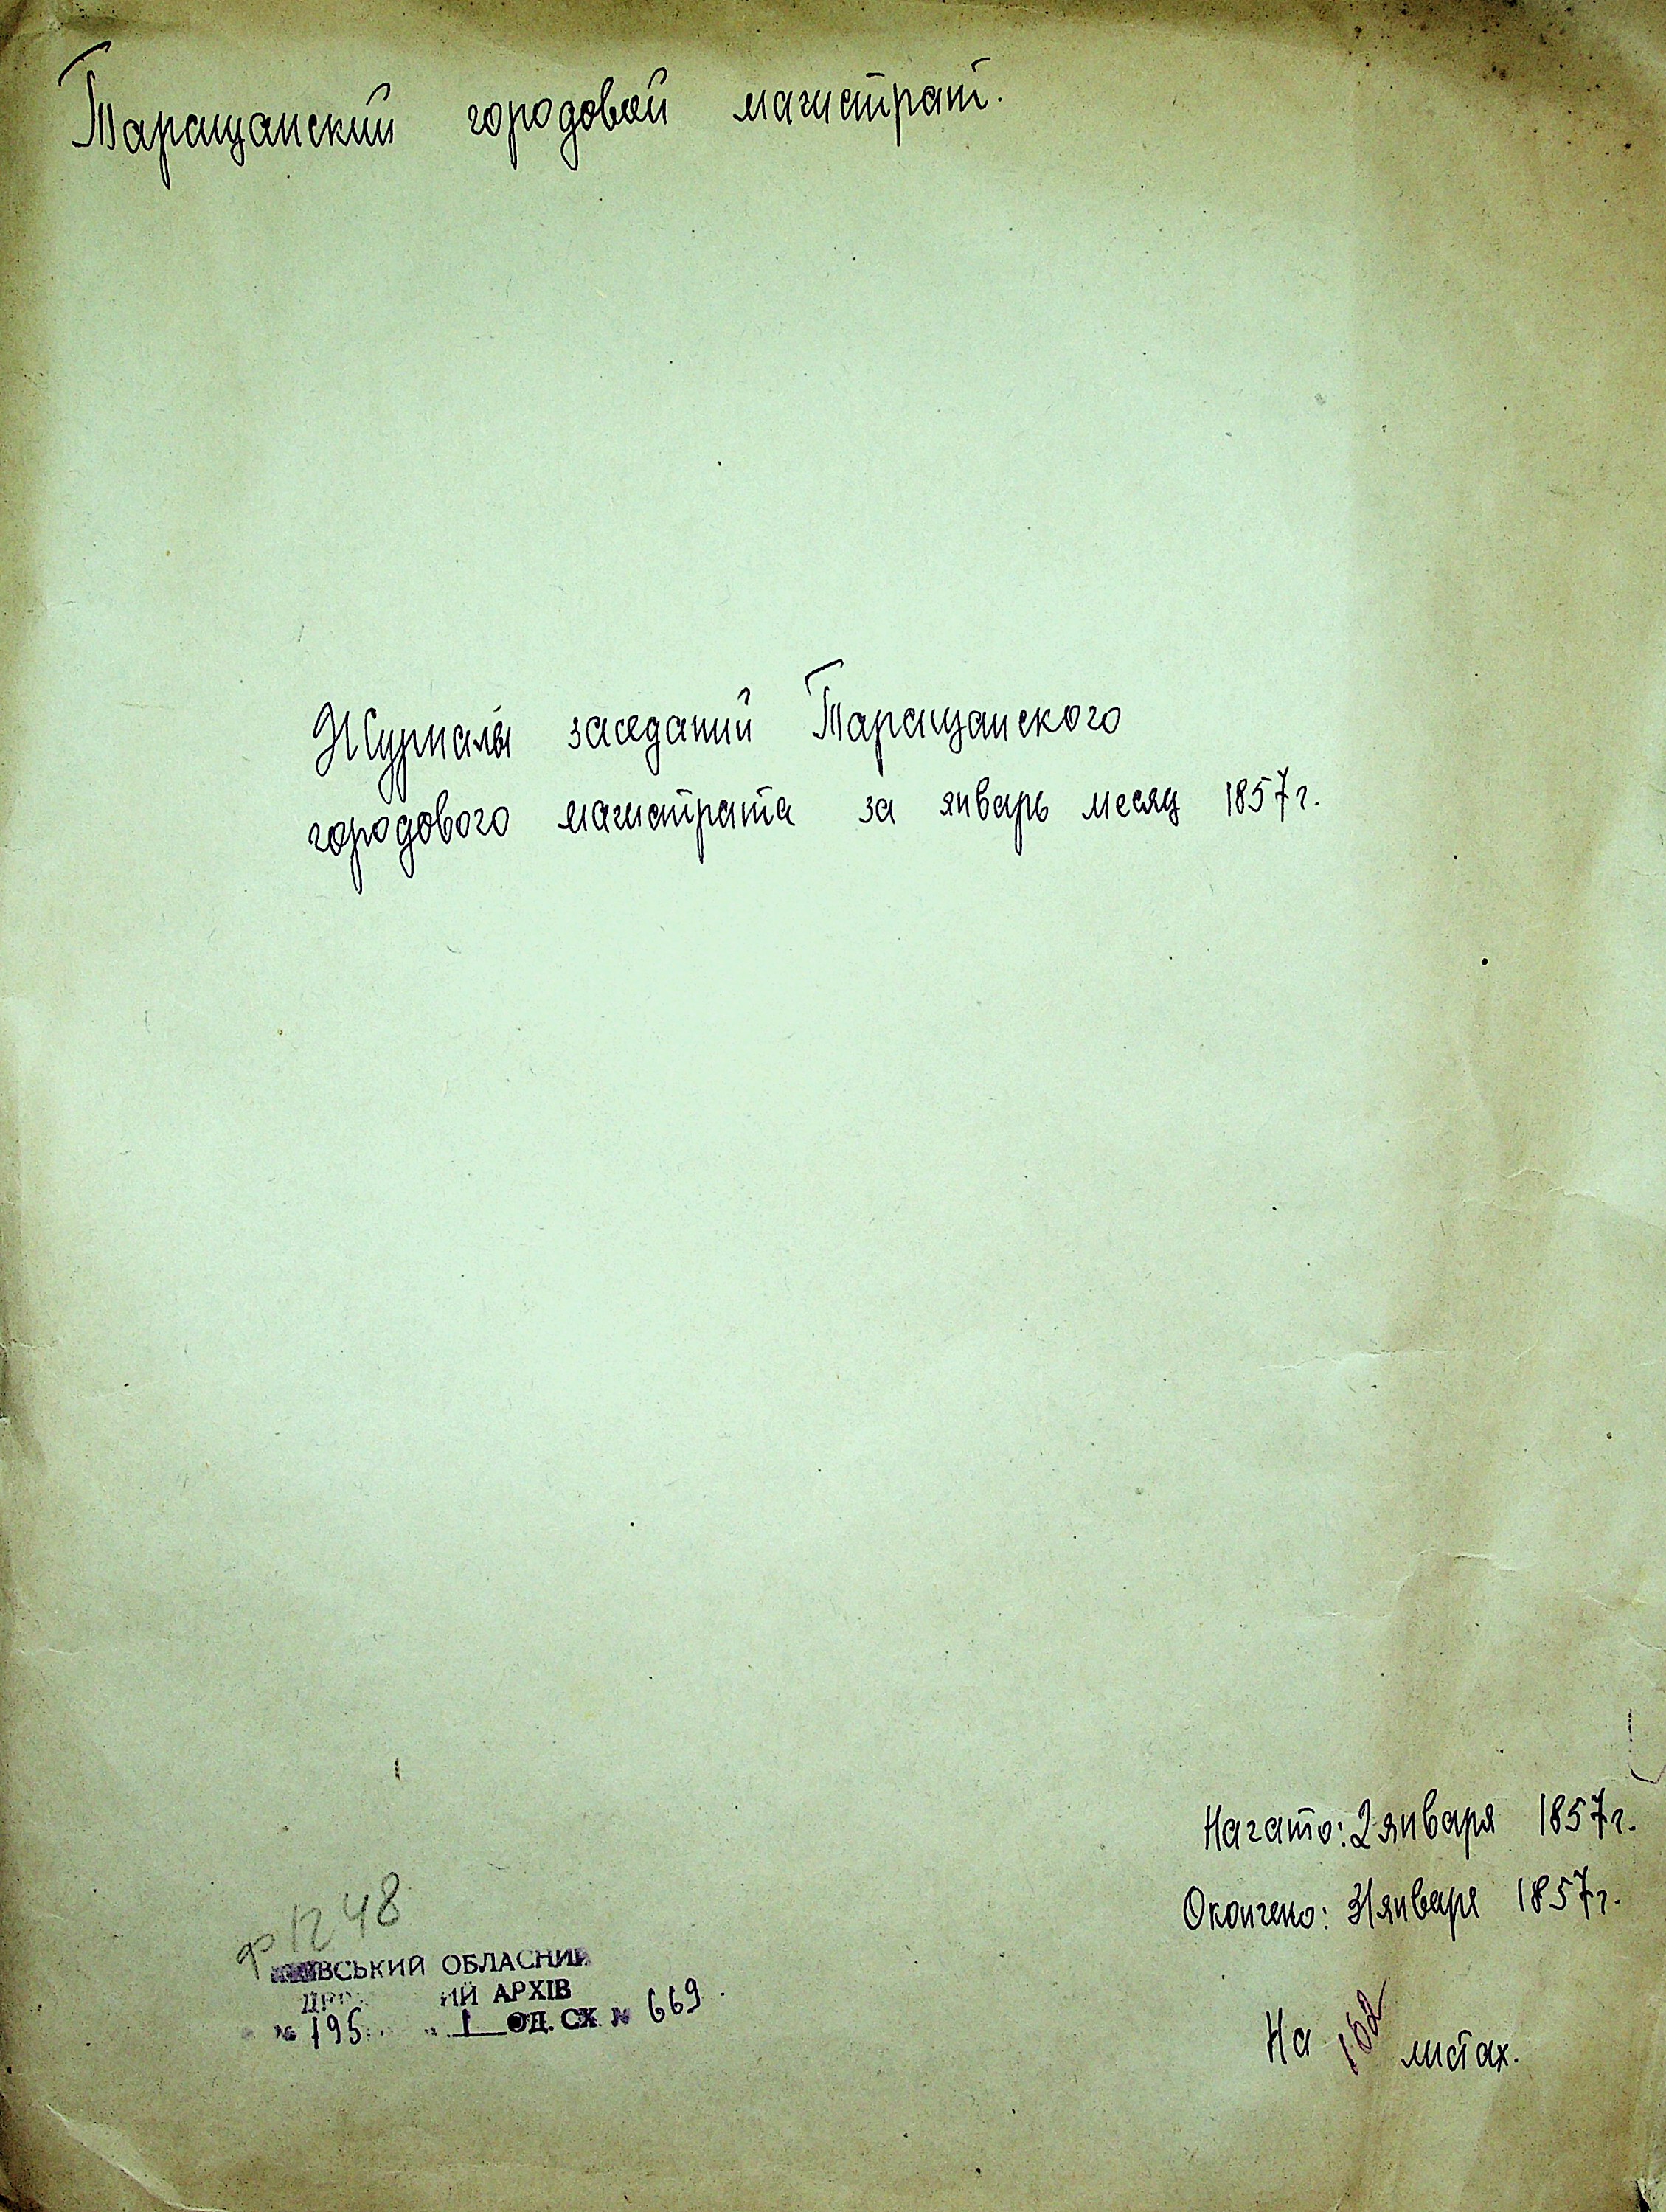 Таращанский городовой магистрат.
Журналы заседаний Таращанского
городового магистрата за январь месяц 1857г.
Начато: 2 января 1857г.
Окончено: 31 января 1857г.
На 162 листах.
Ф 1248
ОБЛАСНИЙ
АРХІВ
№ 195 1 ОД. СХ. № 669.